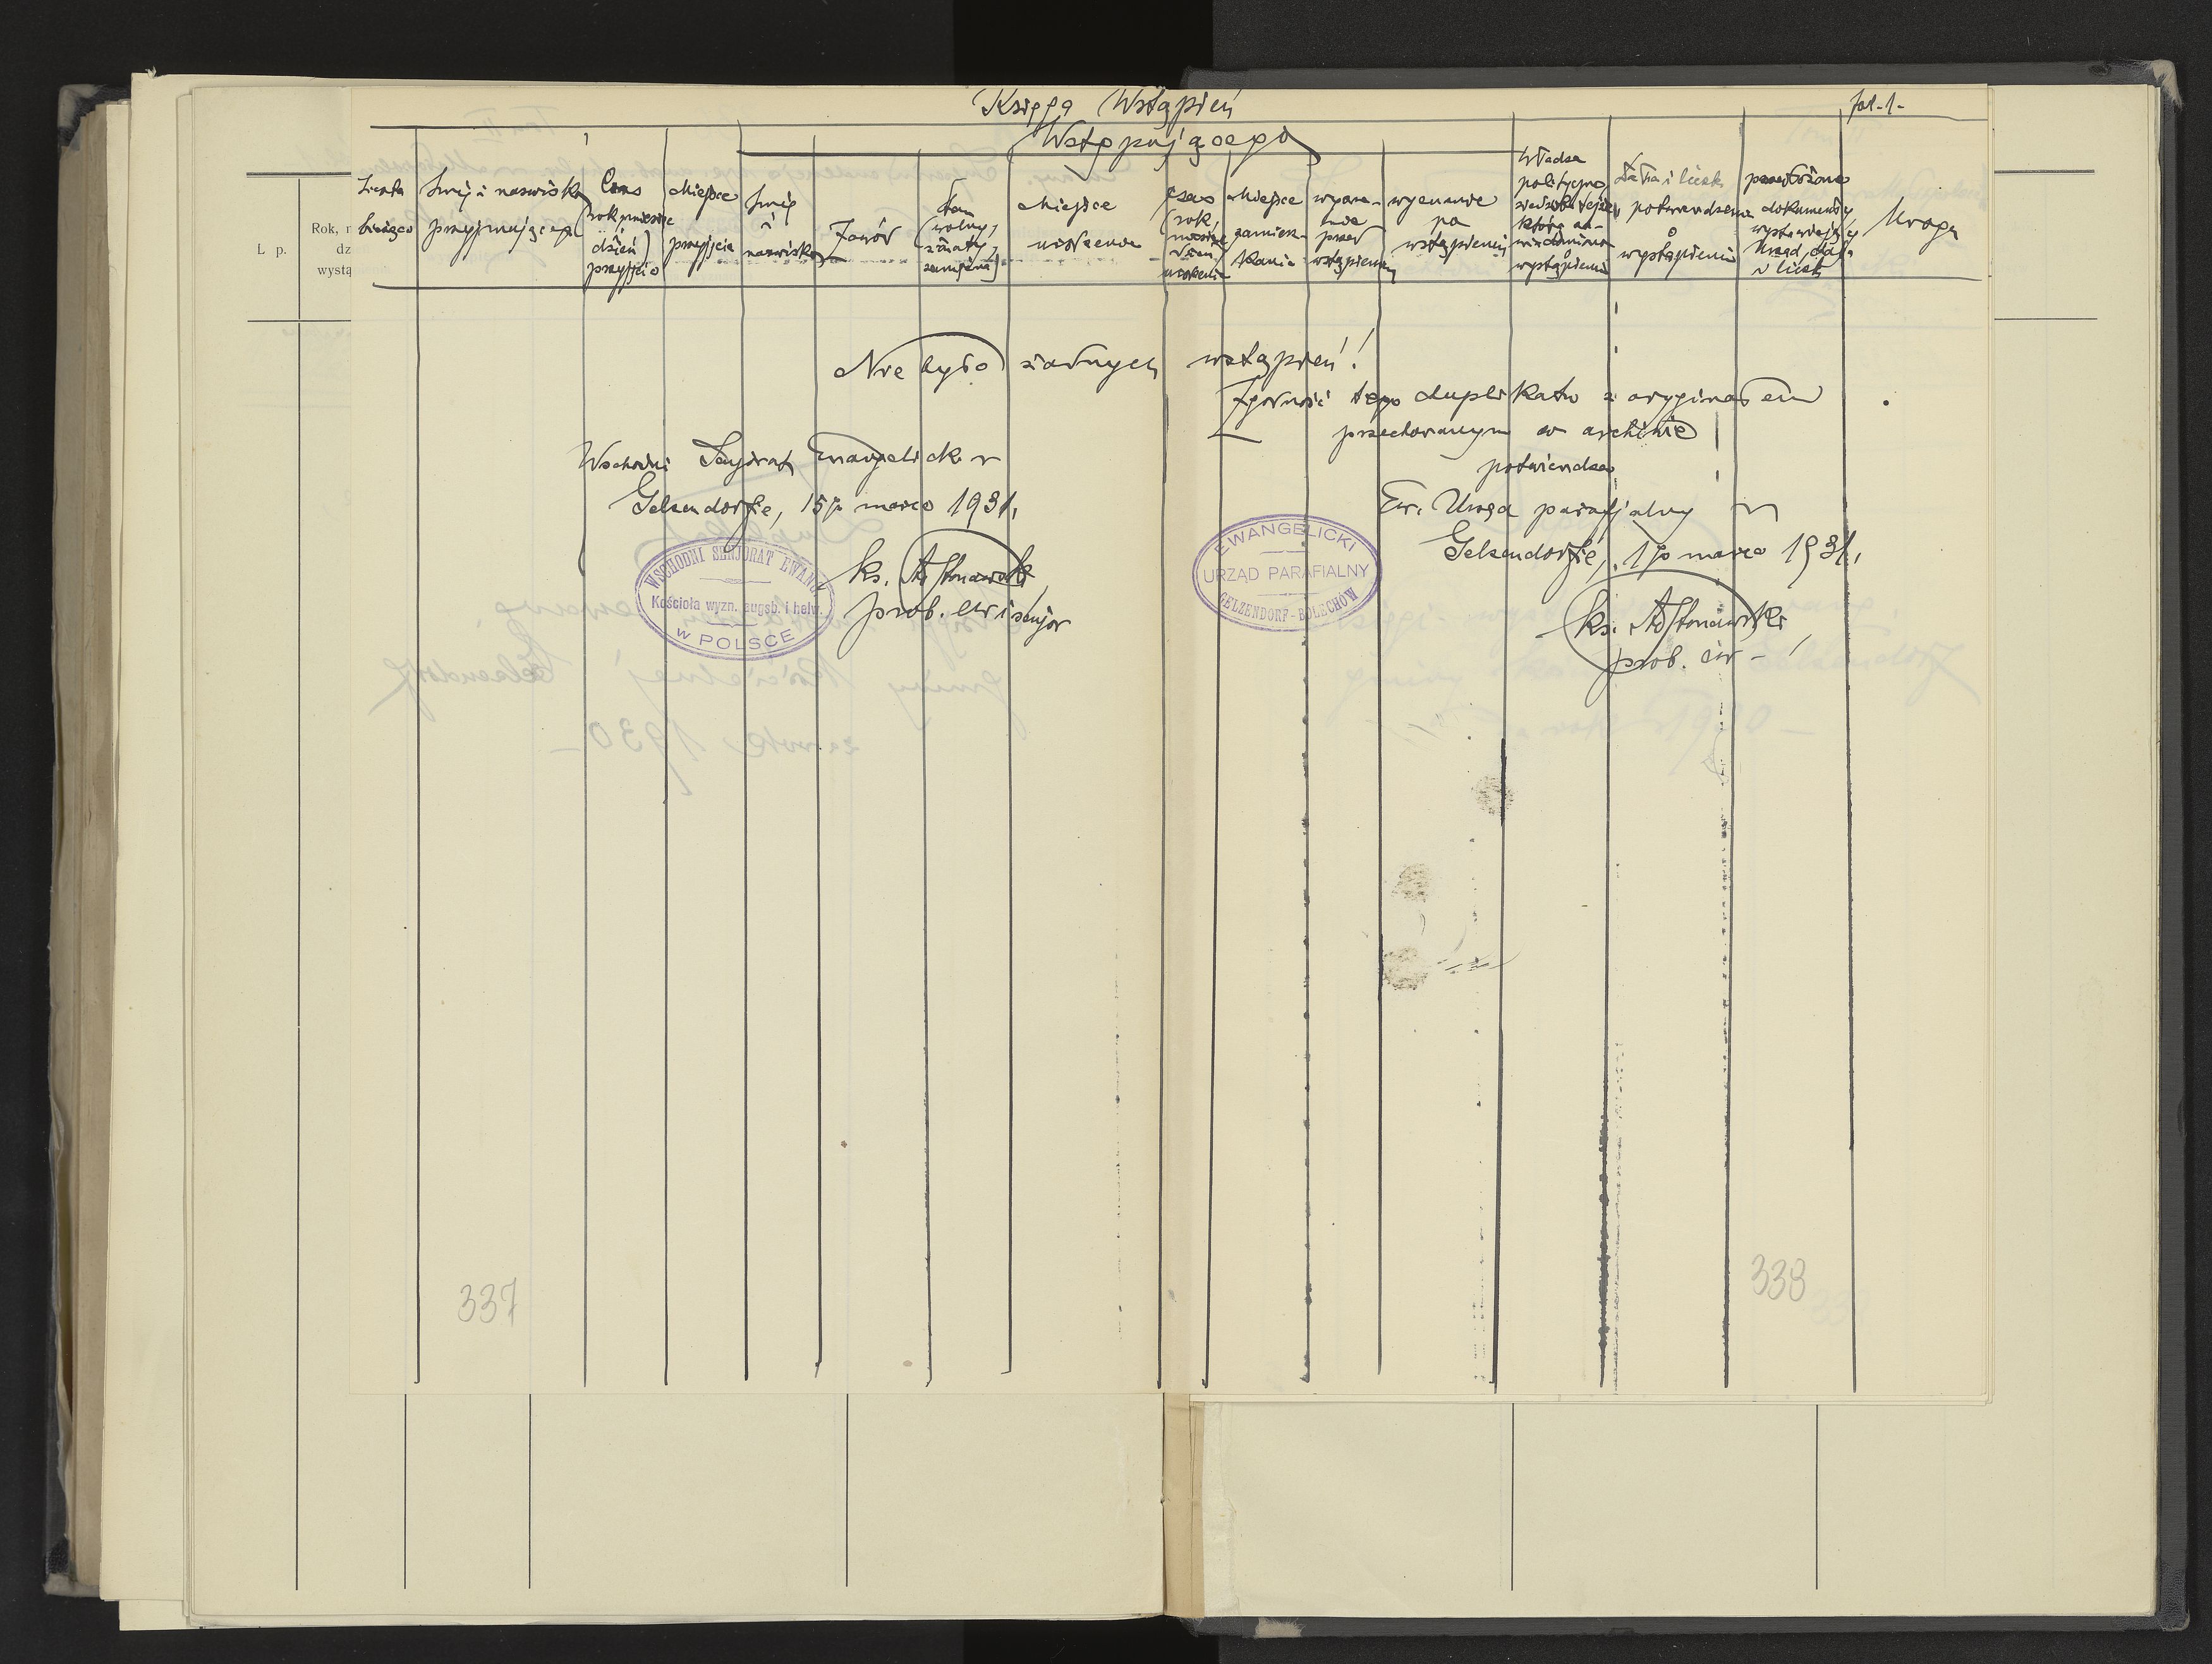 Księga Wstąpień
fol. 1 -
Wstępującego
Liczba bieżąca
Imię i nazwisko przyjmującego
Czas (rok, miesiąc i dzień) przyjęcia
Miejsce przyjęcia
Imię i nazwisko
Zawód
Stan (wolny, żonaty, zamężna)
Miejsce urodzenia
Czas (rok, miesiąc, dzień) urodzenia
Miejsce zamieszkania
wyznanie przed wstąpieniem
wyznanie po wstąpieniu
Władza polityczna
wystąpieniu
Data i liczba potwierdzenia o wystąpieniu
przedłożone dokumenty, wystawiający Urząd, data i liczba
Uwaga
L. p.
Rok, m
dz
wystą
Nie było żadnych wstąpień!
Zgodność tego duplikatu z oryginałem
przechowanym w archiwie
potwierdza
Wschodni Senjorat Ewangelicki w
Gelsendorfie, 15go marca 1931.
Ew. Urząd parafjalny w
Gelsendorfie, 1go marca 1931.
WSCHODNI SENJORAT EWANG.
Kościoła wyzn. augsb. i helw.
W POLSCE
ks.
prob. ew i senjor
EWANGELICKI
URZĄD PARAFIALNY
GELZENDORF-BOLECHÓW
ks.
prob. ew -
337
338